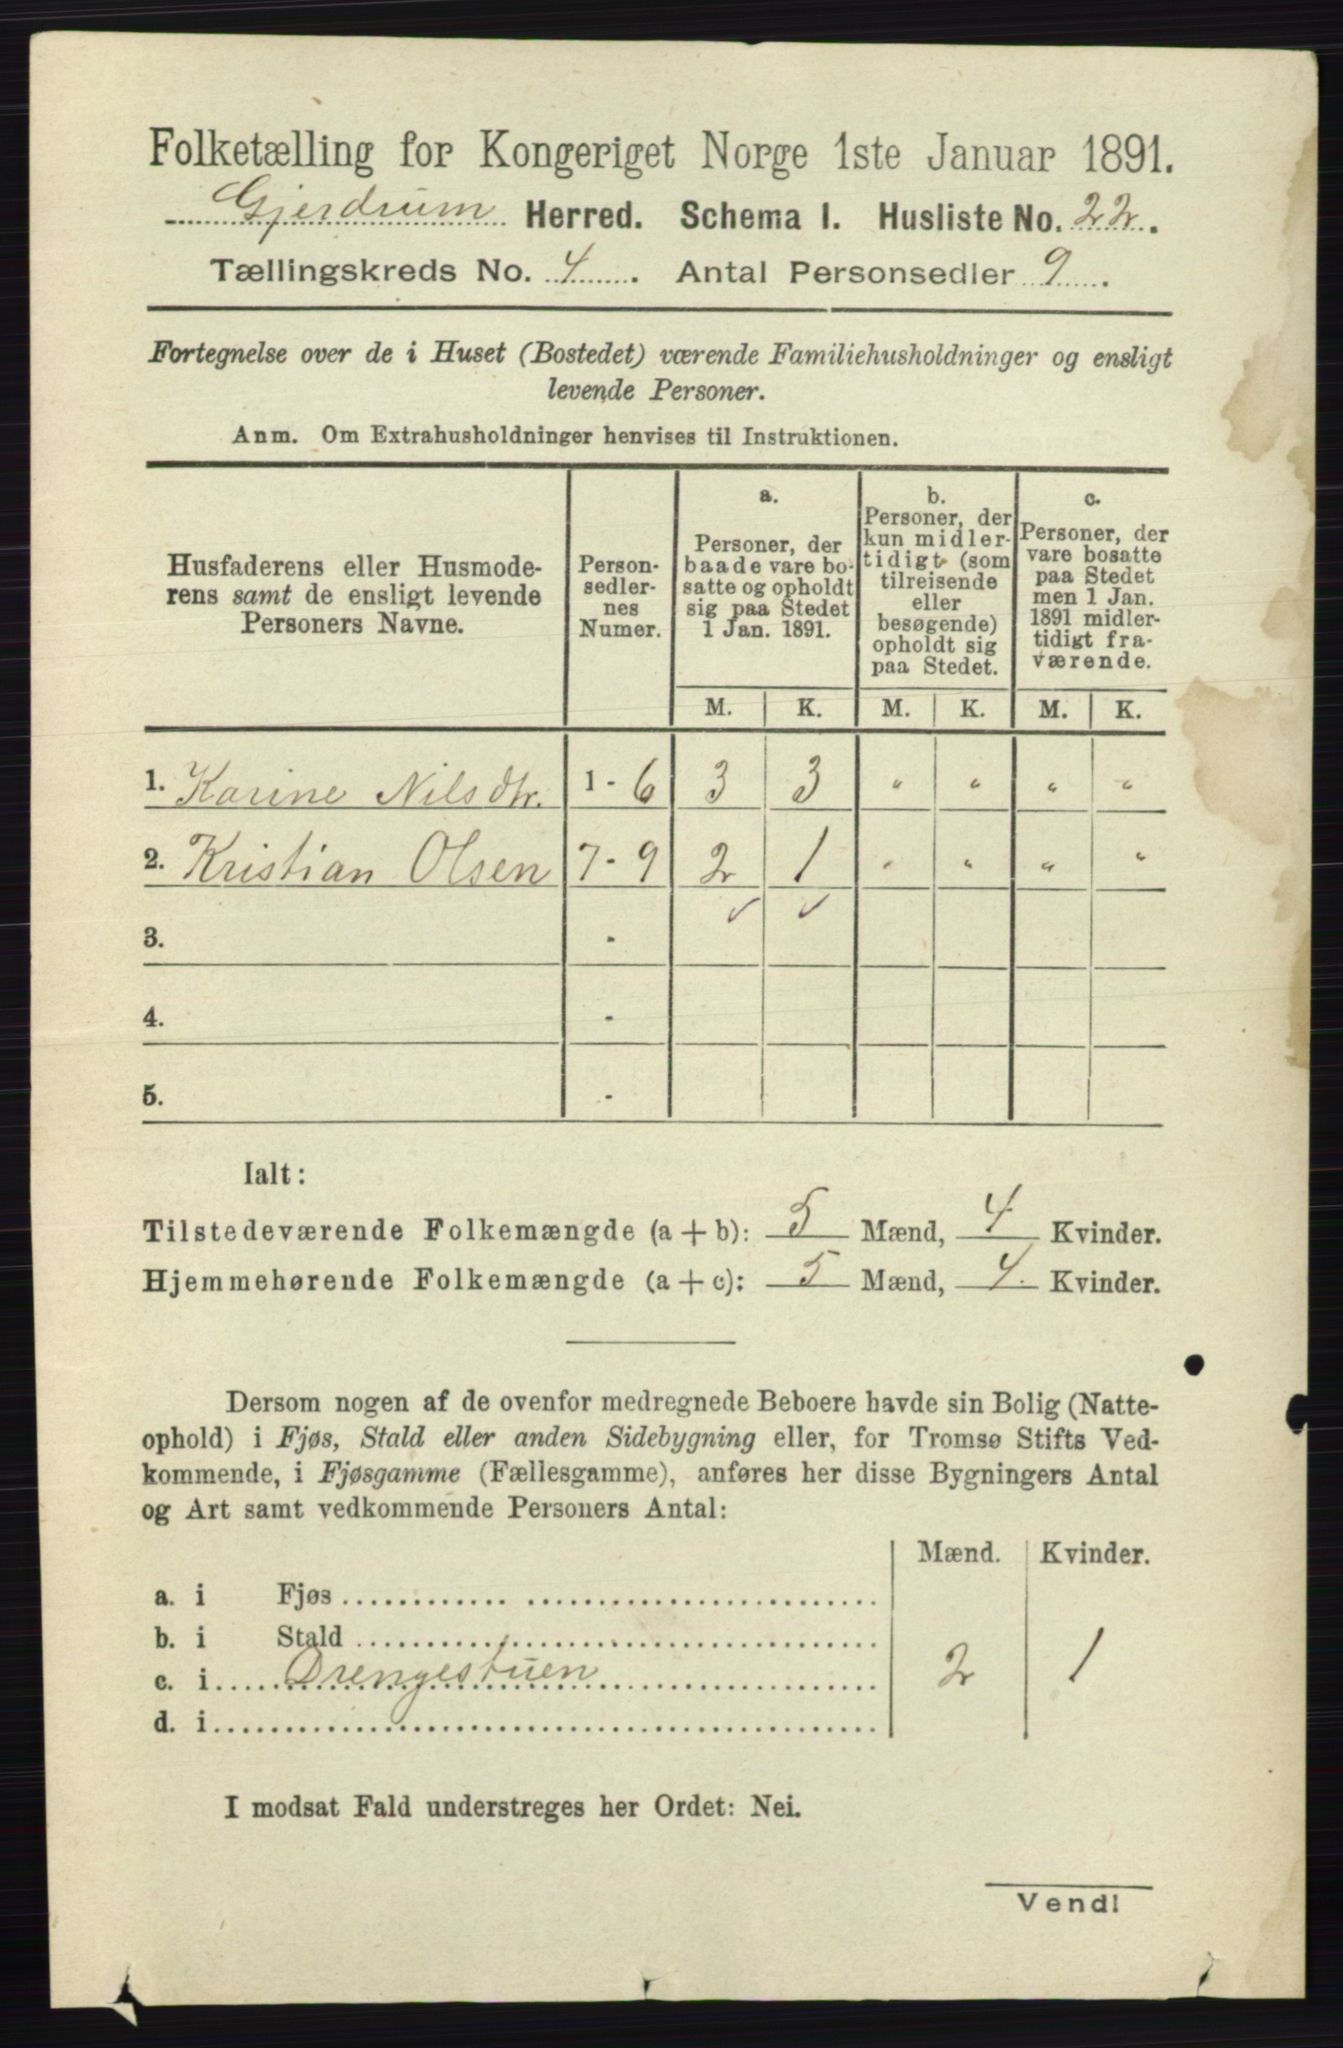 Folketælling for Kongeriget Norge 1ste Januar 1891.
Gjerdrum Herred. Schema I. Husliste No. 22.
Tællingskreds No. 4. Antal Personsedler 9.
Fortegnelse over de i Huset (Bostedet) værende Familiehusholdninger og ensligt
levende Personer.
Anm. Om Extrahusholdninger henvises til Instruktionen.
Husfaderens eller Husmode-
rens samt de ensligt levende
Personers Navne.
Person-
sedler-
nes
Numer.
a.
Personer, der
baade vare bo-
satte og opholdt
sig paa Stedet
1 Jan. 1891.
b.
Personer, der
kun midler-
tidigt (som
tilreisende
eller
besøgende)
opholdt sig
paa Stedet.
c.
Personer, der
vare bosatte
paa Stedet
men 1 Jan.
1891 midler-
tidigt fra-
værende.
M. K. M. K. M. K.
1. Karine Nilsdtr. 1 - 6 3 3 " " " "
2. Kristian Olsen 7 - 9 2 1 " " " "
3. -
4. -
5. -
Ialt:
Tilstedeværende Folkemængde (a + b): 5 Mænd, 4 Kvinder.
Hjemmehørende Folkemængde (a + c): 5 Mænd, 4 Kvinder.
Dersom nogen af de ovenfor medregnede Beboere havde sin Bolig (Natte-
ophold) i Fjøs, Stald eller anden Sidebygning eller, for Tromsø Stifts Ved-
kommende, i Fjøsgamme (Fællesgamme), anføres her disse Bygningers Antal
og Art samt vedkommende Personers Antal:
Mænd. Kvinder.
a. i Fjøs
b. i Stald
c. i Drengestuen 2 1
d. i
I modsat Fald understreges her Ordet: Nei.
Vend!